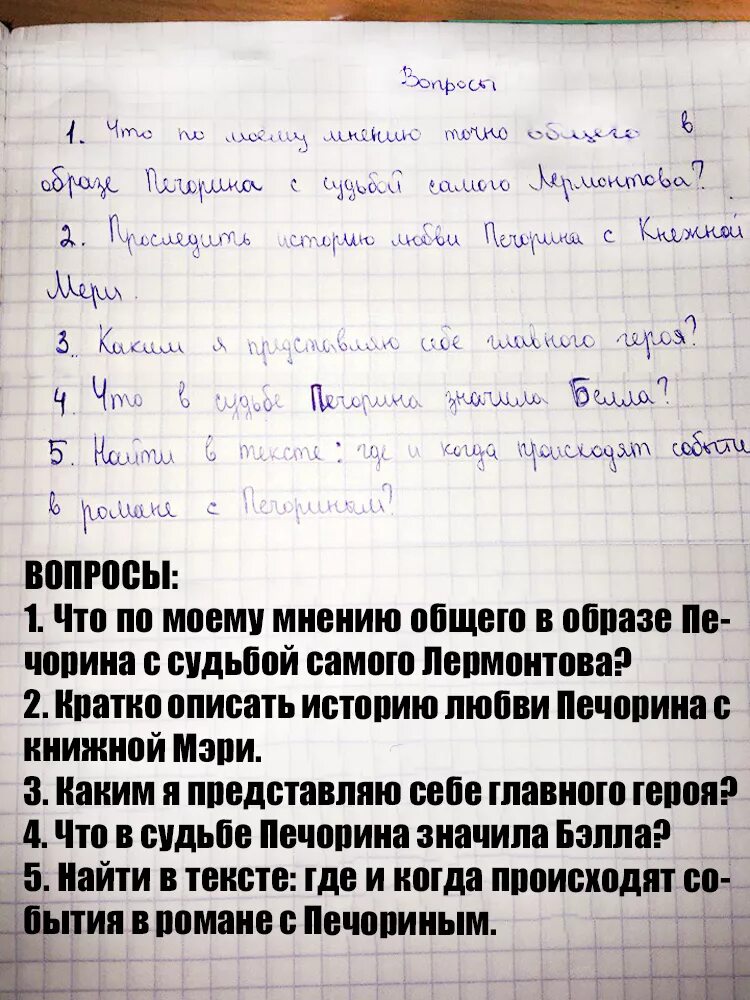 Вопросы
1. Что по моему мнению точно общего в
образе Печорина с судьбой самого Лермонтова?
2. Проследить историю любви Печорина с Кнежной
Мери.
3. Каким я представляю себе главного героя?
4 Что в судьбе Печорина значила Белла?
5. Найти в тексте: где и когда происходят событи
в романе с Печориным?
ВОПРОСЫ:
1. Что по моему мнению общего в образе Пе-
чорина с судьбой самого Лермонтова?
2. Кратко описать историю любви Печорина с
книжной Мэри.
3. Каким я представляю себе главного героя?
4. Что в судьбе Печорина значила Бэлла?
5. Найти в тексте: где и когда происходят со-
бытия в романе с Печориным.